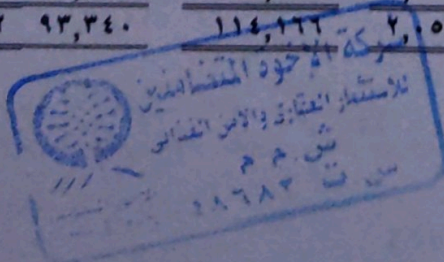 ٩٣,٣٤٠ ١١٤,١٦٦ ٢,٠٥
شركة الإخوة المتضامنين
للاستثمار العقارى والامن الغذائى
ش م م
س ت ١٨٦٨٣